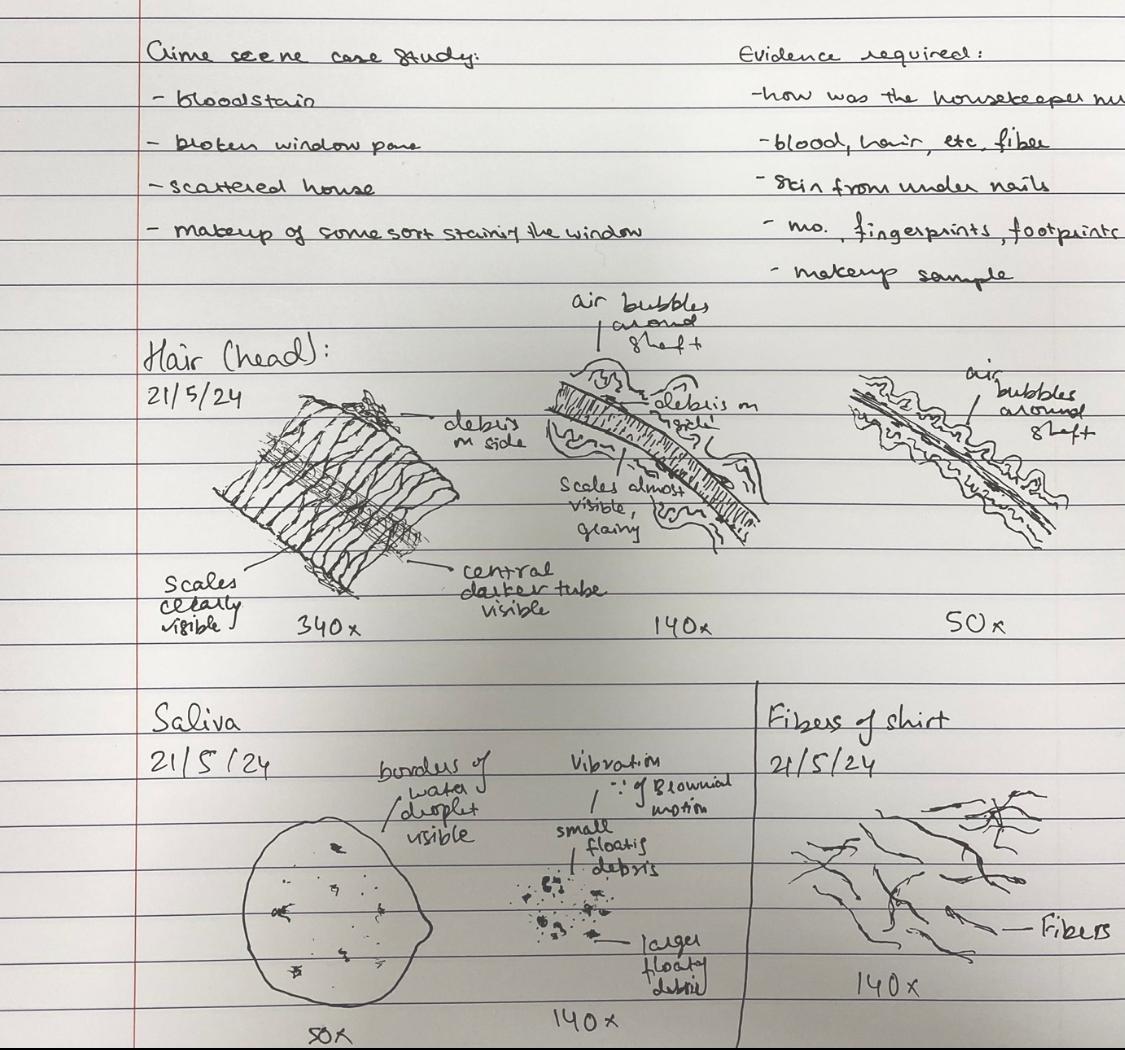 Crime scene case study:
- bloodstain
- broken window pane
- scattered house
- makeup of some sort staining the window
Evidence required:
- how was the housekeeper
- blood, hair, etc, fiber
- skin from under nails
- mo. , fingerprints, footprints
- makeup sample
Hair (head):
21/5/24
debris
on side
Scales
clearly
visible
central
darker tube
visible
340x
air bubbles
around
shaft
debris on
side
Scales almost
visible,
grainy
140x
air
bubbles
around
shaft
50x
Saliva
21/5/24
borders of
water
droplet
visible
50x
Vibration
∵ of Brownian
motion
small
floatig
debris
larger
floaty
debris
140x
Fibers of shirt
21/5/24
Fibers
140x